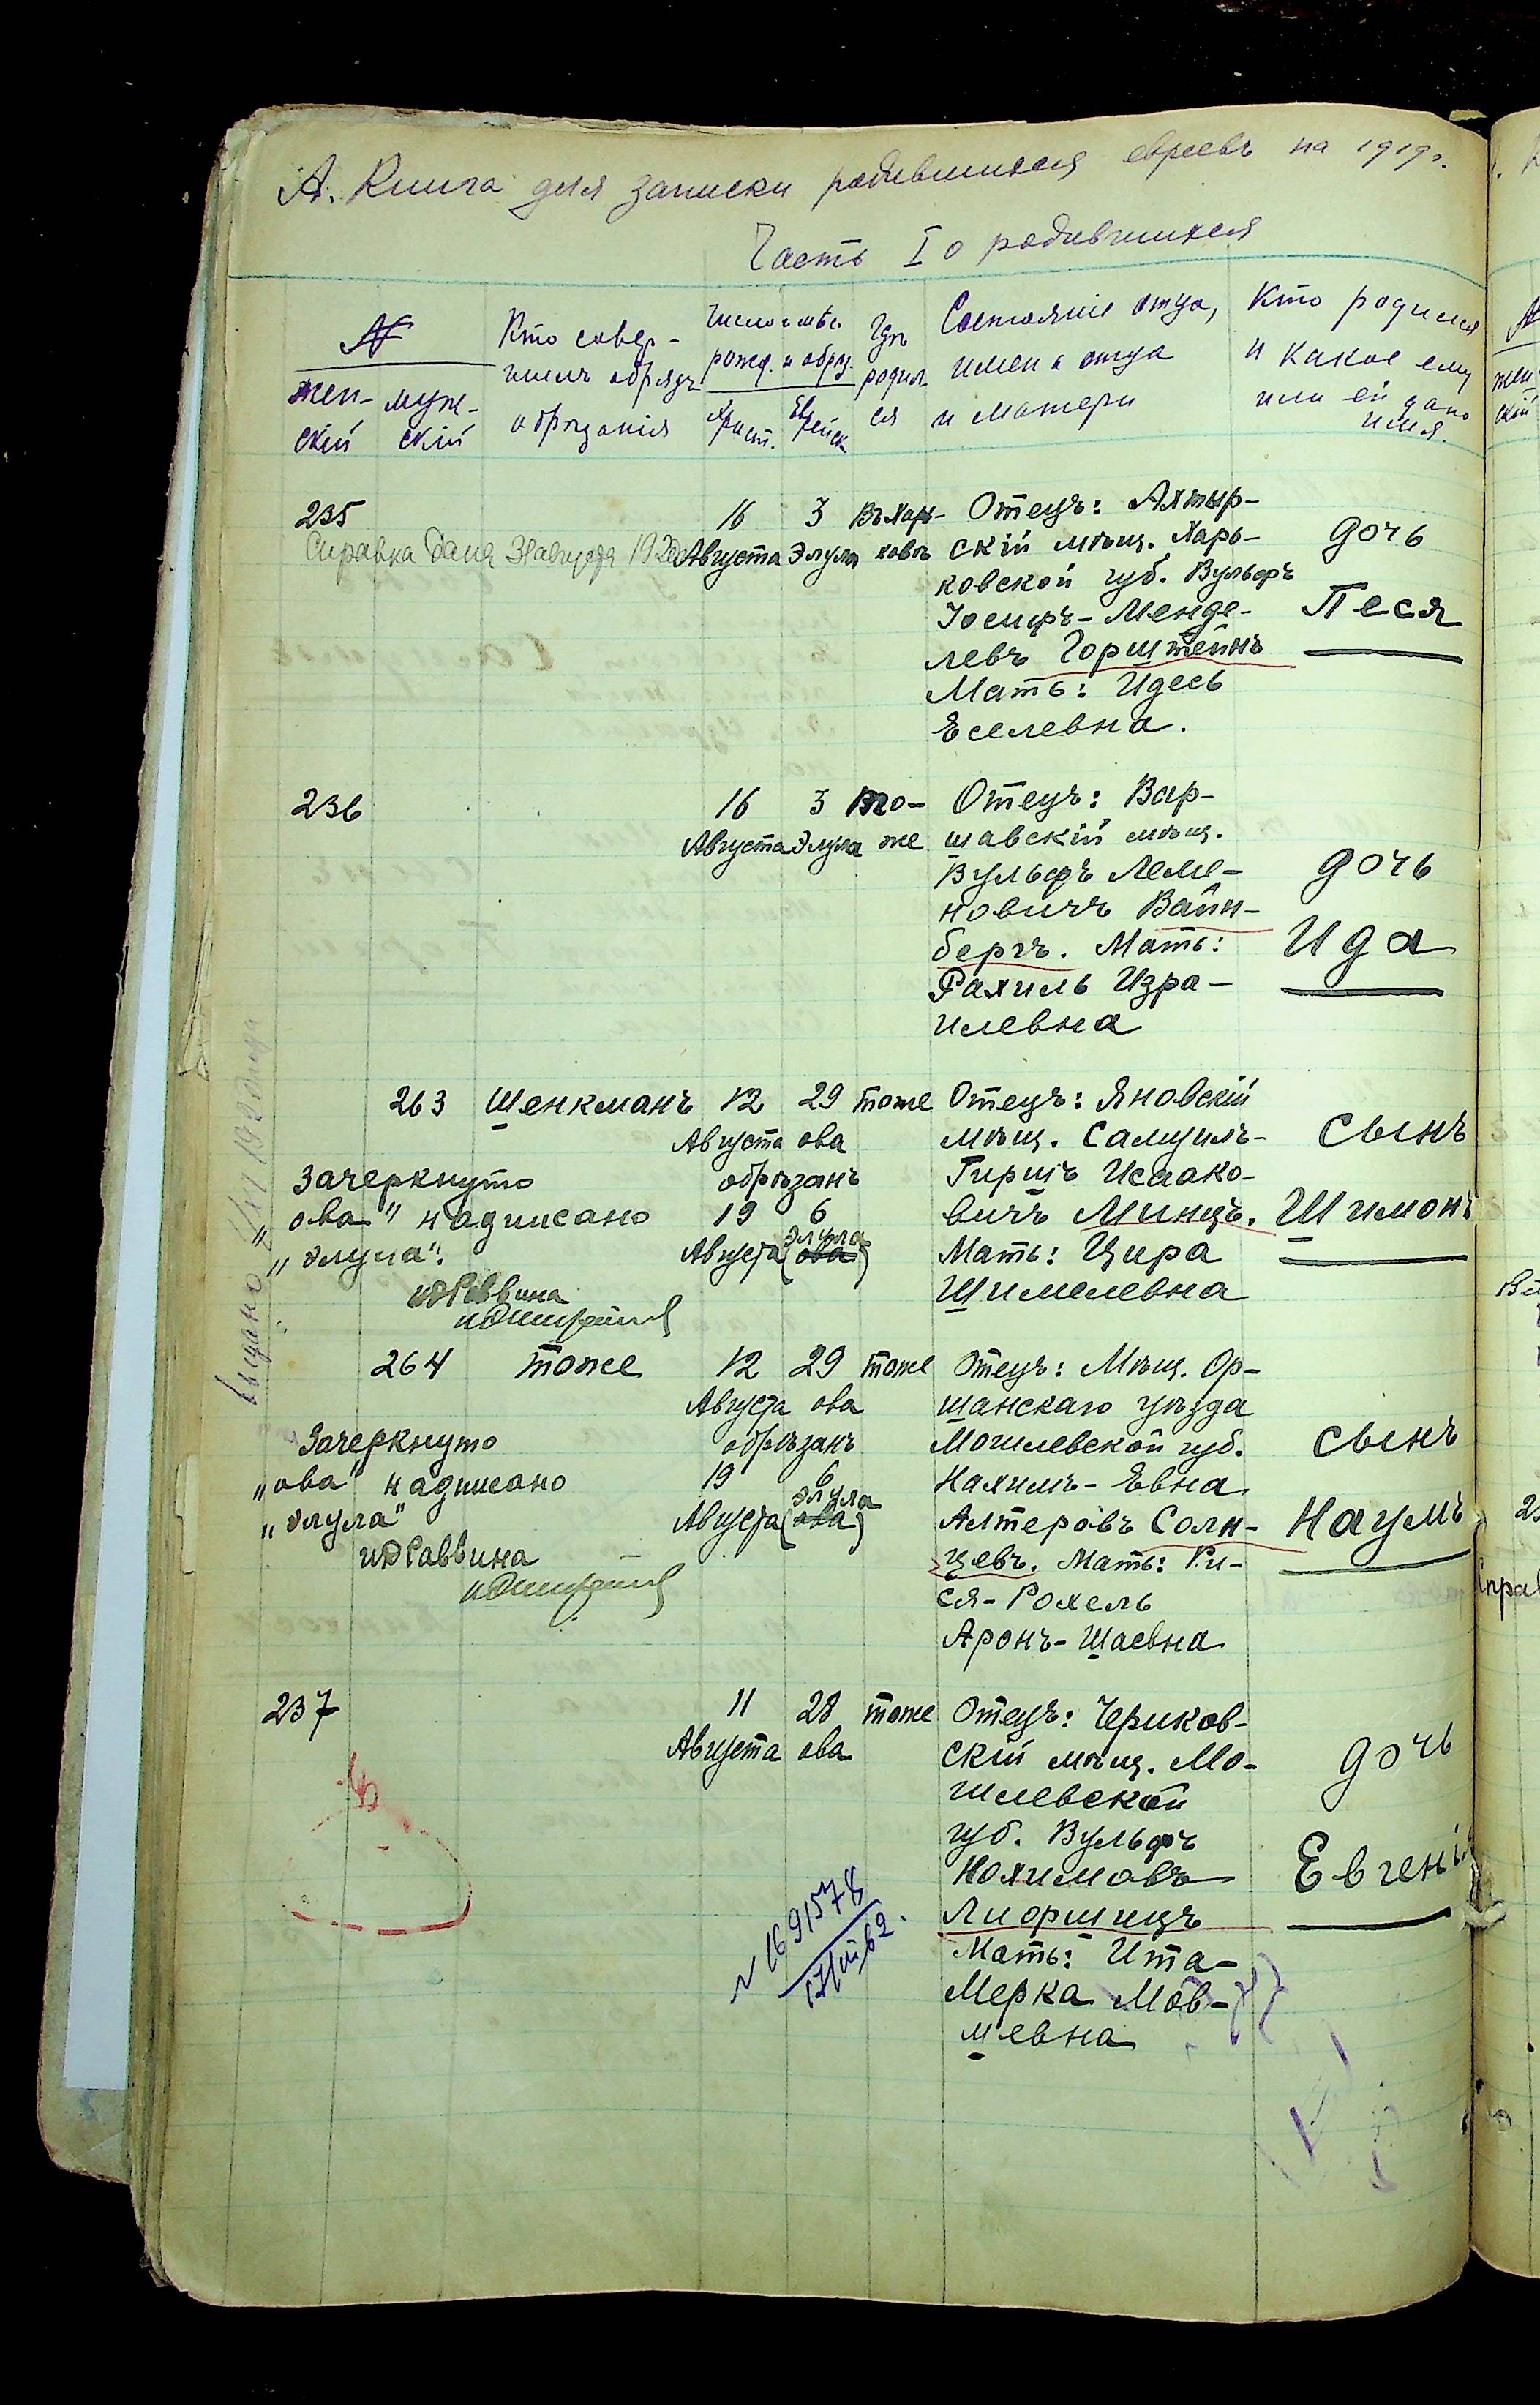 А. Книга для записки родившихся евреевъ на 1919 г.
Часть I о родившихся
№
жен-
скій
муж-
скій
Кто совер-
шилъ обрядъ
обрѣзанія
Число и мѣс.
рожд. и обрѣз.
Христ.
Еврейск.
Гдѣ
родил
ся
Состояніе отца,
имена отца
и матери
Кто родился
и какое ему
или ей дано
имя.
235
Справка дана 3 Августа 192
16
Августа
3
Элула
Въ Харь-
ковѣ
Отецъ: Ахтыр-
скій мѣщ. Харь-
ковской губ. Вульфъ
Іосифъ-Менде-
левъ Горштейнъ
Мать: Идесь
Еселевна.
дочь
Песя
236
16
Августа
3
Элула
то-
же
Отецъ: Вар-
шавскій мѣщ.
Вульфъ Леме-
новичъ Вайн-
бергъ. Мать:
Рахиль Изра-
илевна
дочь
Ида
263
Шенкманъ
12
Августа
29
ова
тоже
обрѣзанъ
19
Августа
6
элула
(ова)
Зачеркнуто
„ова" надписано
„элула".
и.д. Раввина
Отецъ: Яновскій
мѣщ. Самуилъ-
Гиршъ Исаако-
вичъ Минцъ.
Мать: Цира
Шимелевна
сынъ
Шимонъ
264
тоже
12
Августа
29
ова
тоже
обрѣзанъ
19
Августа
6
элула
(ова)
Зачеркнуто
„ова" надписано
„элула"
и.д. Раввина
Отецъ: Мѣщ. Ор-
шанскаго уѣзда
Могилевской губ.
Нахимъ-Евна
Алтеровъ Солн-
цевъ. Мать: Ри-
ся-Рохель
Аронъ-Шаевна
сынъ
Наумъ
237
11
Августа
28
ова
тоже
Отецъ: Чериков-
скій мѣщ. Мо-
гилевской
губ. Вульфъ
Нохимовъ
Лиоршицъ
Мать: Ита-
Мерка Мов-
шевна
дочь
Евгенія
№ 1691578
17/VII 62.
Выдано